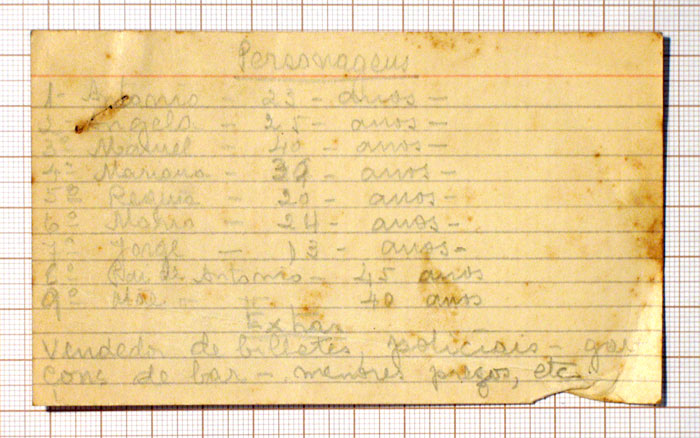 Personagens
1- Antonio - 23 - anos -
2- Angela - 25 - anos -
3º Manuel - 40 - anos -
4º Mariana - 36 - anos -
5º - 20 - anos -
6º Mario - 24 - anos -
7º Jorge - 13 - anos -
8º Pai de Antonio - 45 anos
9º Mãe " " 40 anos
Extras
Vendedor de billetes, policiais - gar
çons de bar - menores presos, etc.